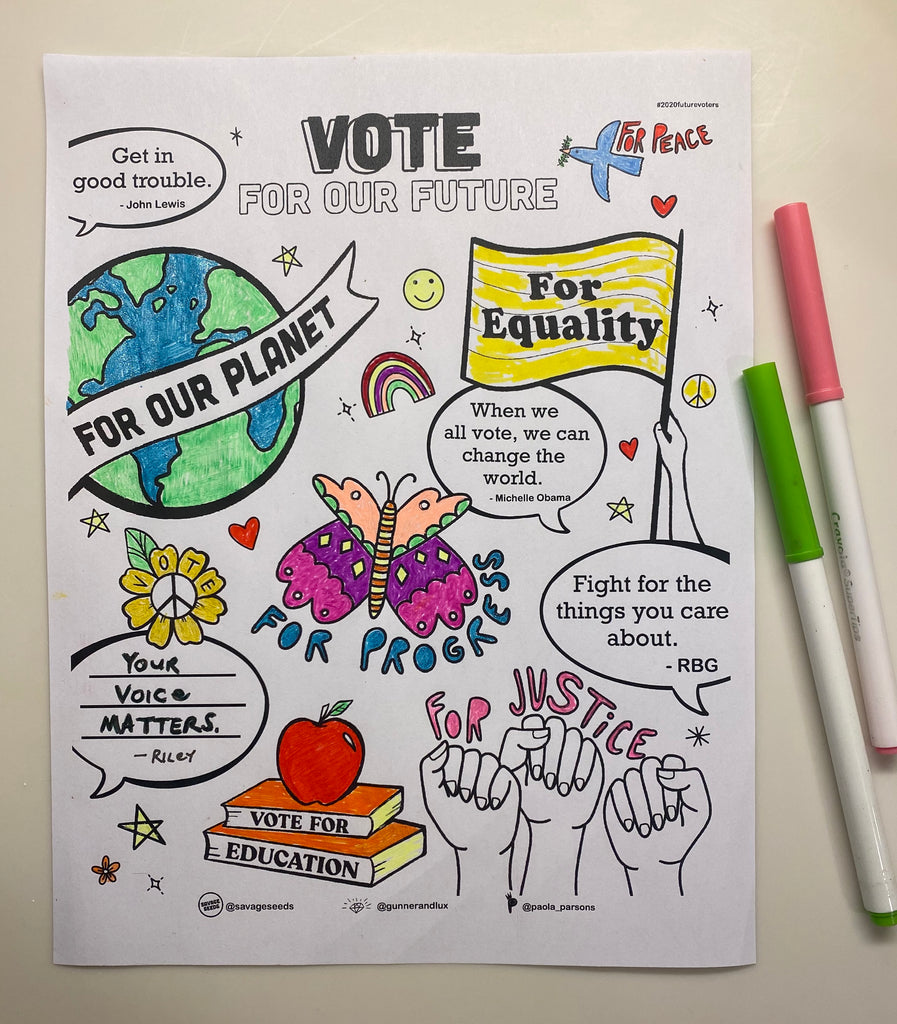 #2020futurevoters
VOTE
FOR OUR FUTURE
Get in
good trouble.
- John Lewis
FOR PEACE
FOR OUR PLANET
For
Equality
When we
all vote, we can
change the
world.
- Michelle Obama
VOTE
FOR PROGRESS
Fight for the
things you care
about.
- RBG
YOUR
VOICe
MATTERS.
- RILEY
FOR JUSTiCE
VOTE FOR
EDUCATION
SAVAGE
SEEDS
@savageseeds
@gunnerandlux
@paola_parsons
Crayola SuperTips